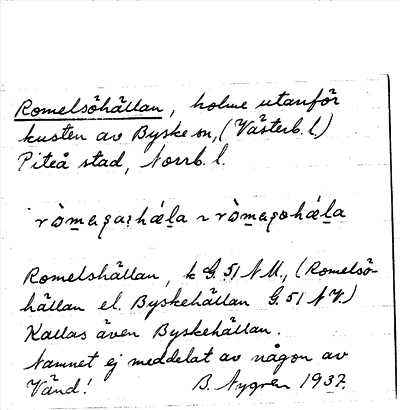 Romelsöhällan, holme utanför
kusten av Byske sn, (Västerb. l.)
Piteå stad, Norrb. l.
Romelshällan, k G. 51 N M., (Romelsö-
hällan el. Byskehällan G. 51 N V.)
Kallas även Byskehällan.
Namnet ej meddelat av någon av
Vänd! B. Nygren 1937.